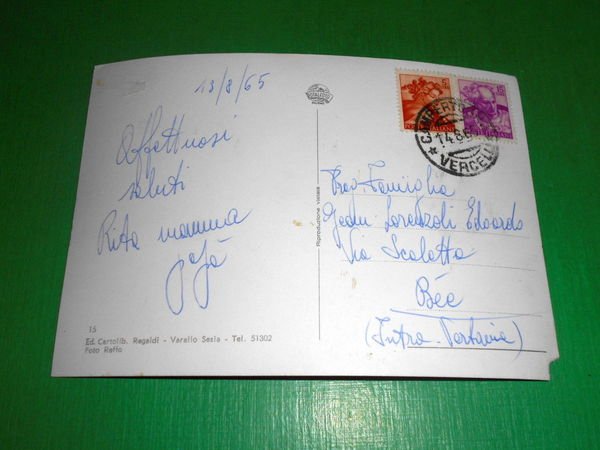 13/8/65
Affettuosi
saluti
Rita mamma
papà
15
Ed. Cartolib. Regaldi - Varallo Sesia - Tel. 51302
Foto Reffo
Riproduzione vietata
5
15
POSTE ITALIANE
14.8.6
VERCELLI
Famiglia
Geom Lorenzoli Edoardo
Via Scaletta
Bèe
(Intra-Verbania)